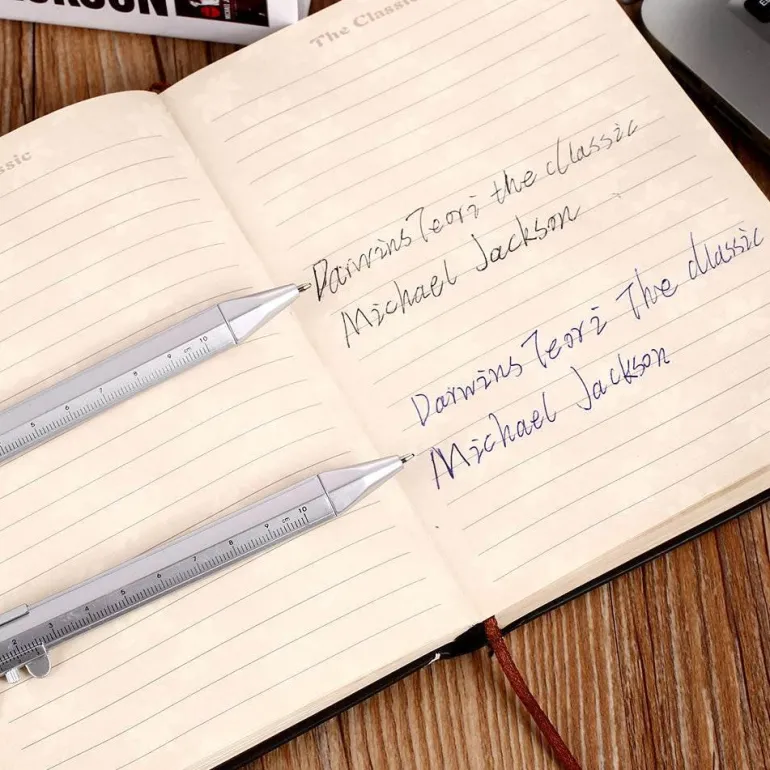 The Classic
ssic
Darwins Teori the classic
Michael Jackson
Darwins Teori The classic
Michael Jackson
5 6 7 8 9 cm 10
2 3 4 5 6 7 8 9 cm 10